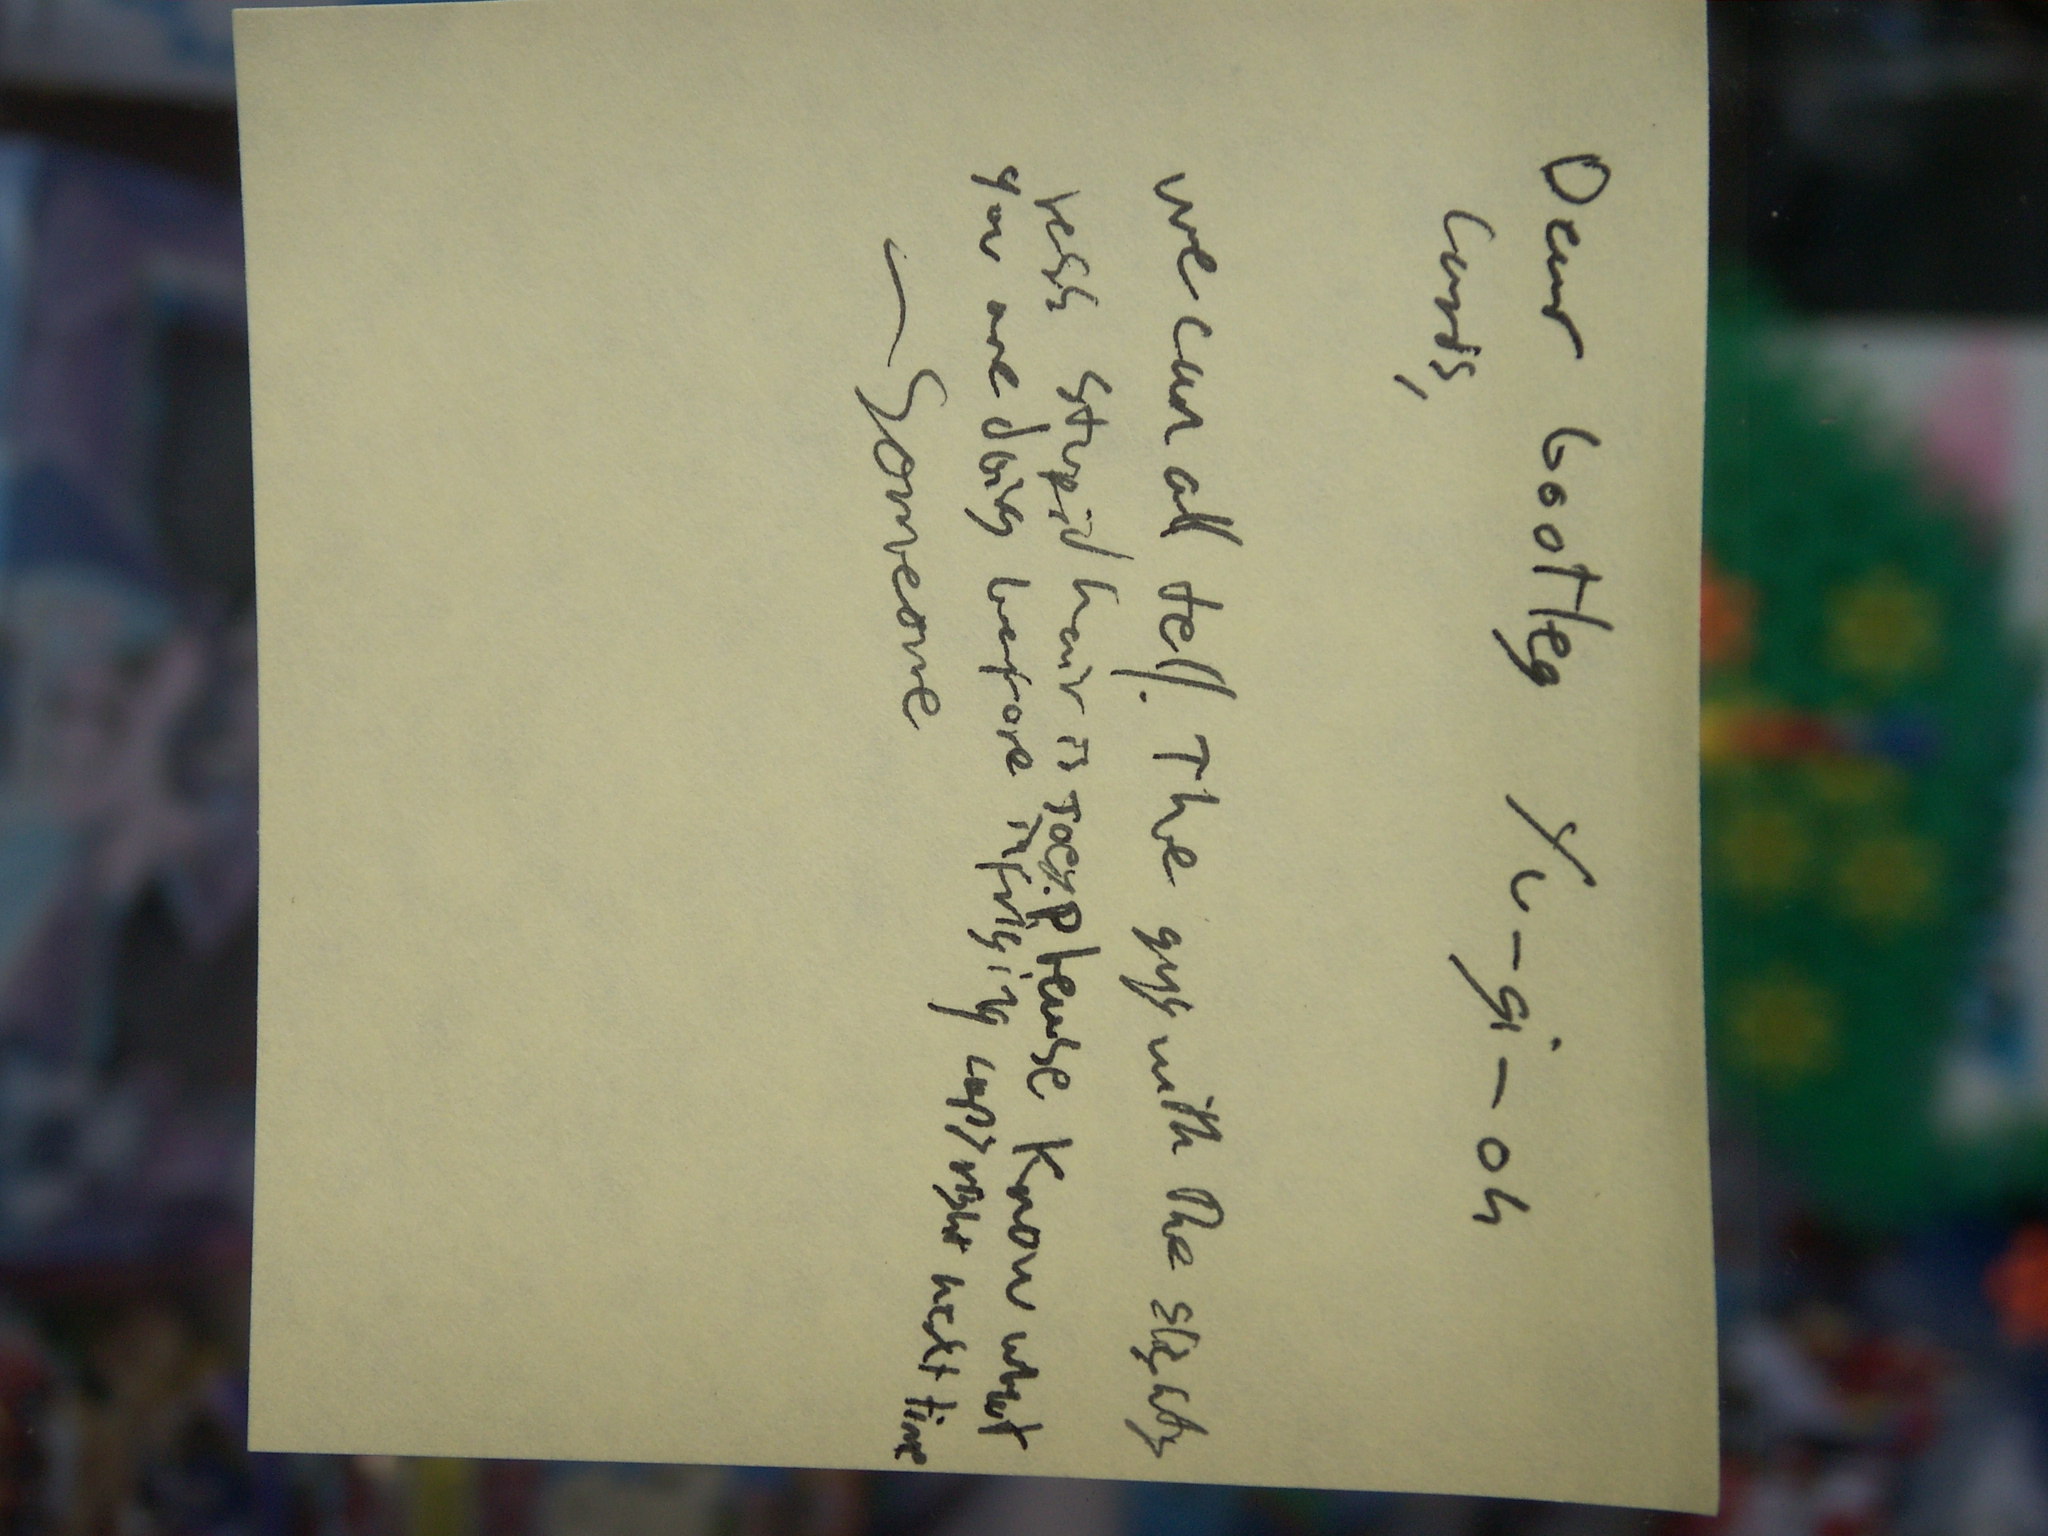 Dear bootleg Yu-gi-oh
Cards,
we can all tell. The guy with the slighty
less stupid hair is Joey. Please Know what
you are doing before infringing copyright next time
— Someone